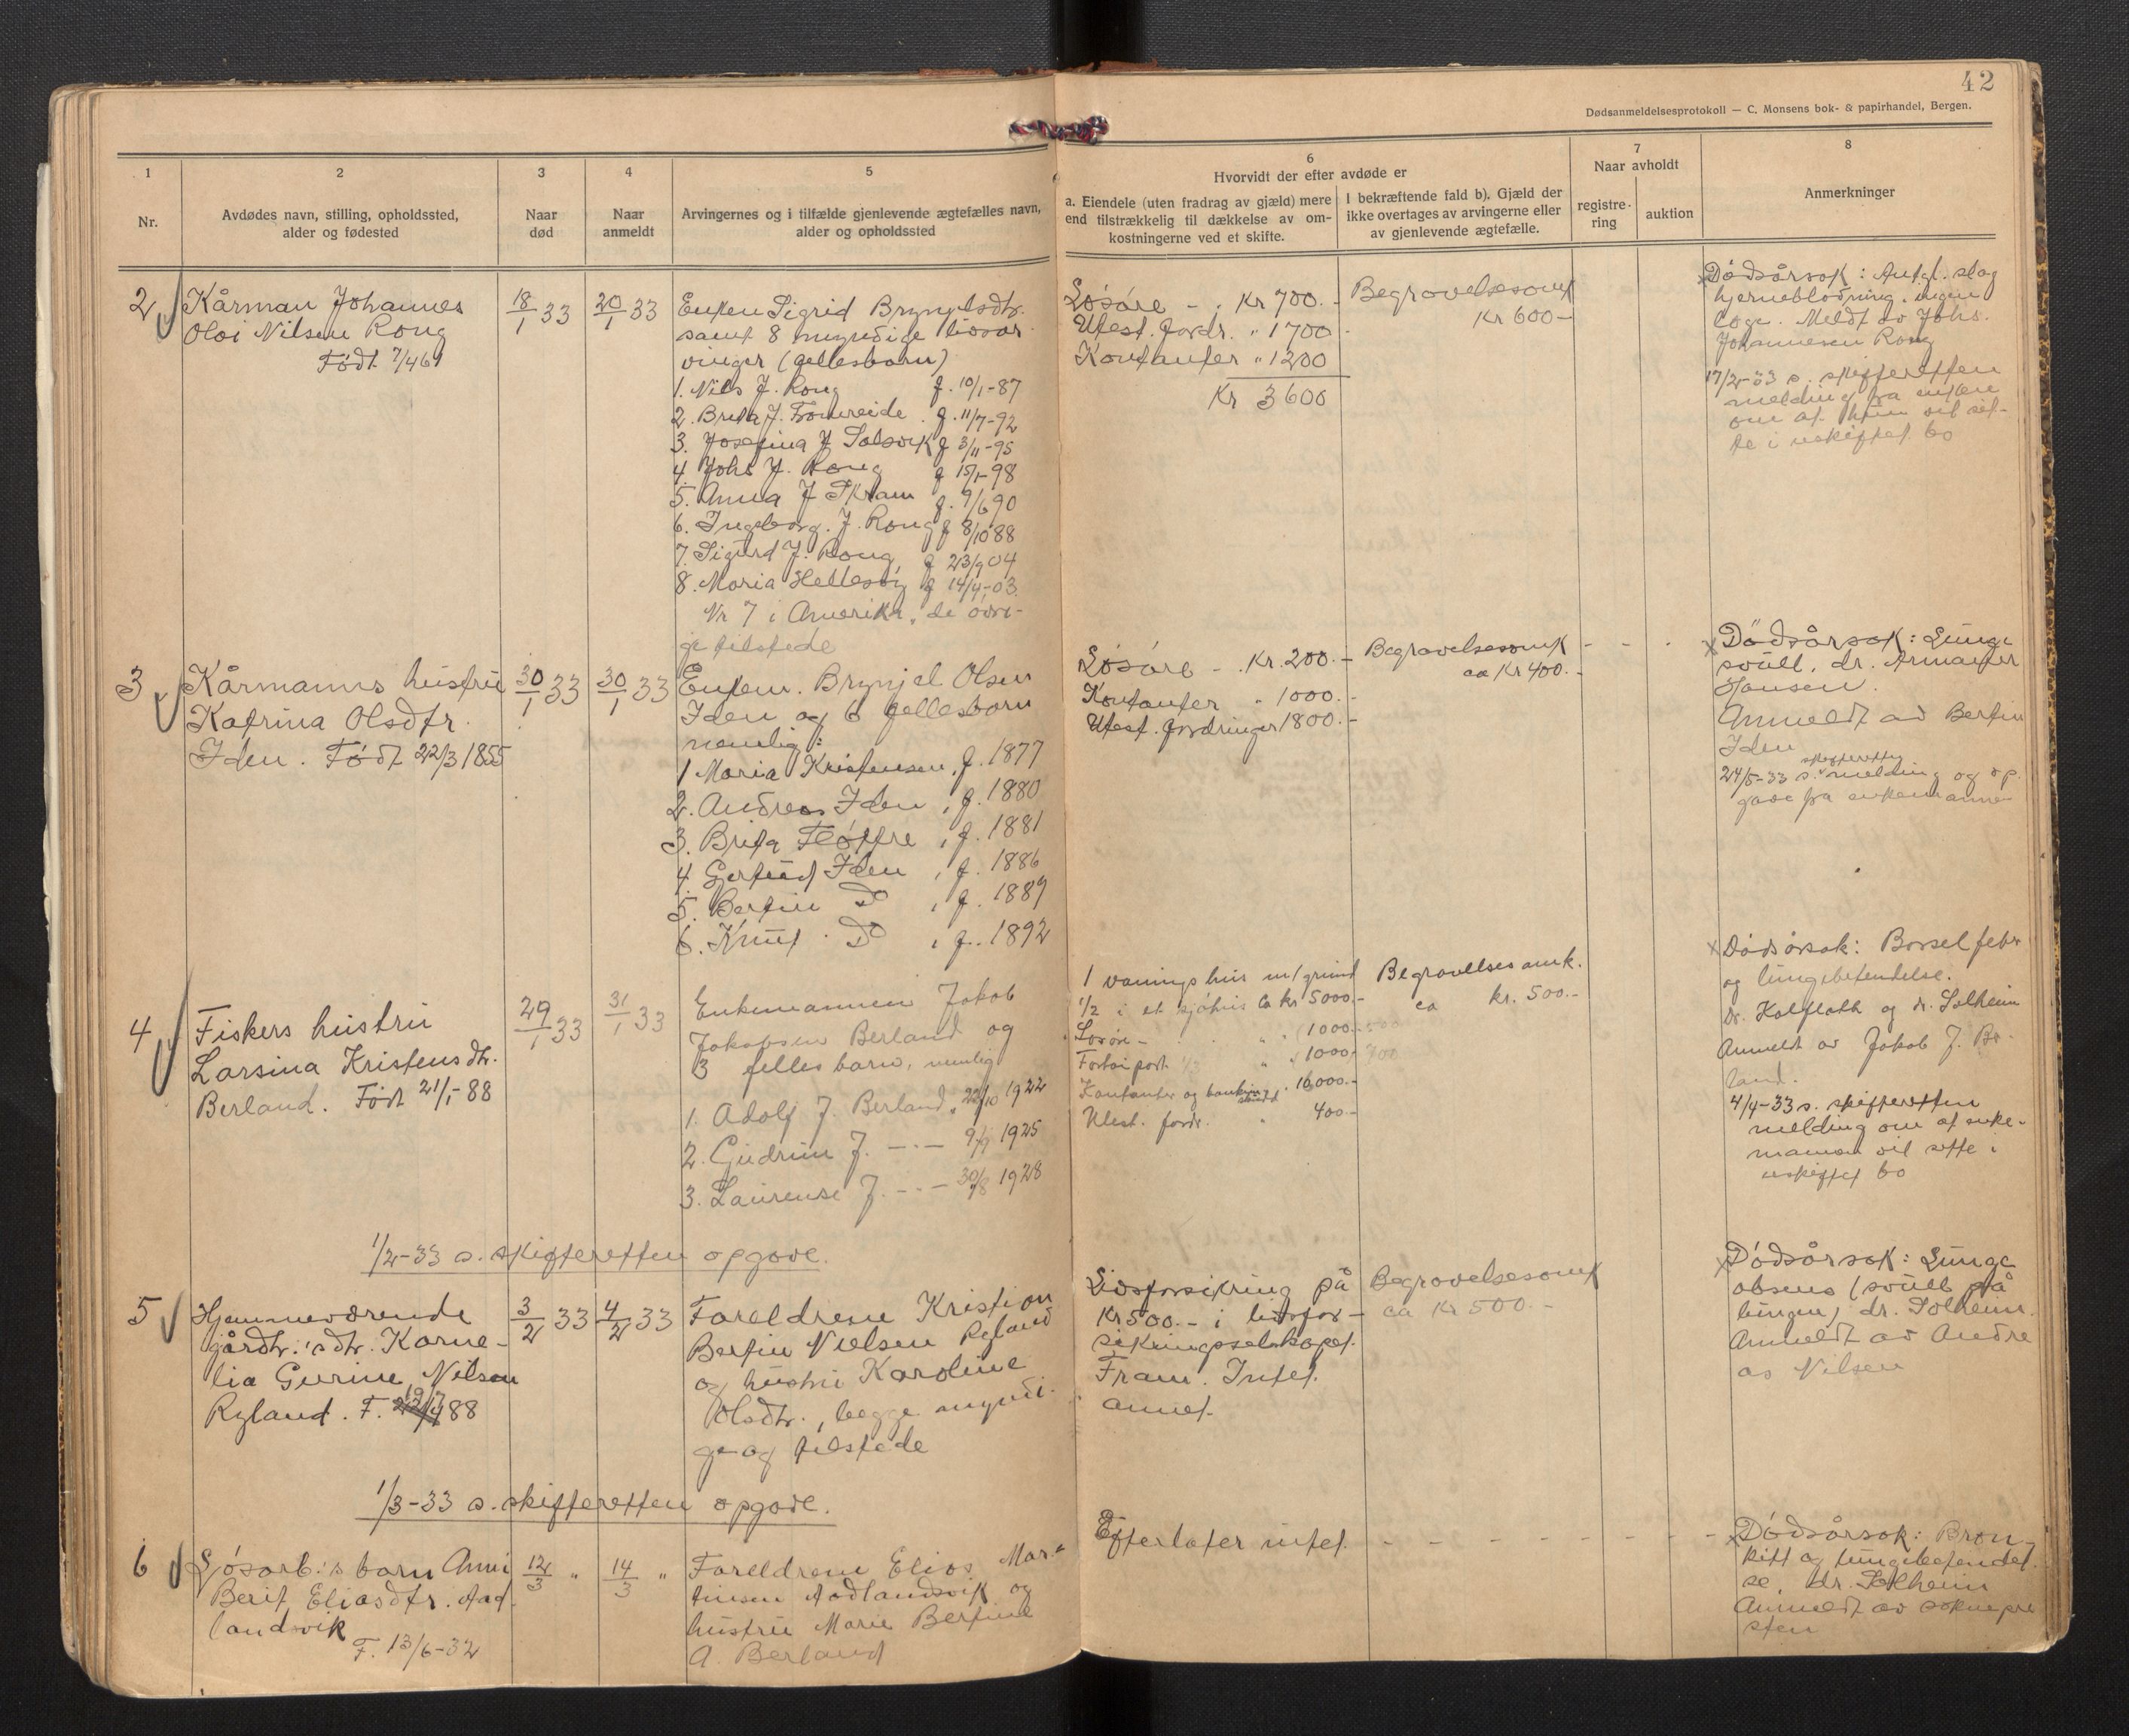 42
Dødsanmeldelsesprotokoll — C. Monsens bok- & papirhandel, Bergen.
1
Nr.
2
Avdødes navn, stilling, opholdssted,
alder og fødested
3
Naar
død
4
Naar
anmeldt
5
Arvingernes og i tilfælde gjenlevende ægtefælles navn,
alder og opholdssted
6
Hvorvidt der efter avdøde er
a. Eiendele (uten fradrag av gjæld) mere
end tilstrækkelig til dækkelse av om-
kostningerne ved et skifte.
I bekræftende fald b). Gjæld der
ikke overtages av arvingerne eller
av gjenlevende ægtefælle.
7
Naar avholdt
registre-
ring
auktion
8
Anmerkninger
2
Kårman Johannes
Oloi Nilsen Rong
Født 7/46
18/1 33
20/1 33
Enken Sigrid Brynjelsdtr.
samt 8 myndige livsar
vinger (fellesbarn)
1. Nils J. Rong f. 10/1-87
2. Brita J. Tommreide f. 11/7-92
3. Josefina J Solsvik f 3/11-95
4. Johs J. Rong f 15/1-98
5. Anna J Skram f. 9/6 90
6. Ingeborg. J. Rong f 8/10 88
7. Sigurd J. Rong f 23/9 04
8. Maria Hellesøy f 14/4-03.
Nr 7 i Amerika, de øvri-
ge tilstede
Løsøre - . Kr 700.-
Utest. fordr. " 1700-
Kontanter " 1200
Kr 3600
Begravelsesomk
Kr 600-
Dødsårsak: Antgl. slag
hjerneblødning. ingen
lege. Meldt av Johs.
Johannesen Rong
17/2-33 s. skifteretten
melding fra enken
om at hun vil sit-
te i uskiftet bo
3
Kårmanns hustru
Katrina Olsdtr.
Iden. Født 22/3 1855
30/1 33
30/1 33
Enkem. Brynjel Olsen
Iden og 6 fellesbarn
nemlig:
1 Maria Kristensen, f. 1877
2. Andreas Iden, f. 1880
3. Brita Fløttre, f. 1881
4. Gertrud Iden, f. 1886
5. Bertin Do, f. 1889
6. Knut Do, f. 1892
Løsøre - . Kr. 200.-
Kontanter " 1000.-
Utest. fordringer 1800.-
Begravelsesomk
ca Kr 400.-
Dødsårsak: Lunge
svull. dr. Armauer
Hansen.
Anmeldt av Bertin
Iden
skifteretten
24/5-33 s. melding og op.
gave fra enkemannen
4
Fiskers hustru
Larsina Kristensdtr.
Berland. Født 21/1-88
29/1 33
31/1 33
Enkemannen Jakob
Jakobsen Berland og
3 felles barn, nemlig
1. Adolf J. Berland, 22/10 1922
2. Gudrun J. -·- 9/9 1925
3. Laurense J. -·- 30/8 1928
1 vånings hus m/grund
1/2 i et sjøhus ca kr 5000.-
Løsøre - " 1000.-
" 1000.-
Kontanter og bankinnskudd " 16000.-
Utest. fordr. " 400-
Begravelsesomk.
ca kr. 500.-
Dødsårsak: Barselfeber
og lungebetendelse.
Dr. Kalfloth og dr. Solheim
Anmeldt av Jakob J. Ber
land.
4/4-33 s. skifteretten
melding om at enke-
mannen vil sitte i
uskiftet bo
1/2-33 s. skifteretten opgave.
5
Hjemmeværende
gårdbr.'s dtr. Korne-
lia Gurine Nilsen
Ryland. F. 19/7 88
3/2 33
4/2 33
Foreldrene Kristian
Bertin Nielsen Ryland
og hustru Karoline
Olsdtr., begge myndi-
ge og tilstede
Livsforsikring på
Kr 500.- i livsfor-
sikringsselskapet.
Fram. Intet
annet.
Begravelsesomk
ca Kr 500.-
Dødsårsak: Lunge
absess (svull på
lungen) dr. Solheim.
Anmeldt av Andre
as Nilsen
1/3-33 s. skifteretten opgave.
6
Sjøarb.:s barn Anni
Berit Eliasdtr. Aad
landsvik
F. 13/6-32
12/3 "
14/3 "
Foreldrene Elias Mar-
tinsen Aadlandsvik og
hustru Marie Bertine
A. Berland
Efterlater intet. - - - - - - -
Dødsårsak: Bron-
kitt og lungebetendel-
se, dr. Solheim
Anmeldt av sokne pre
sten